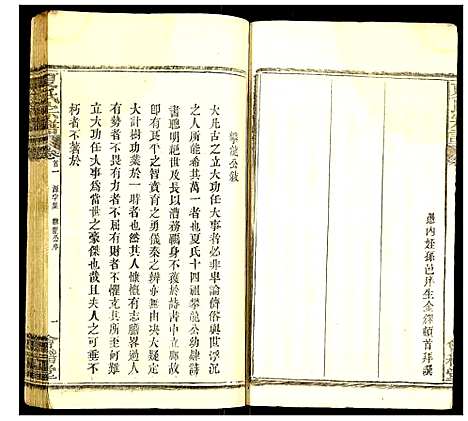 愚內姪孫邑庠生金鐸頓首拜譔
攀龍公敘
大凡古之立大功任大事者必非卑論儕俗與世浮沉
之人所能希其萬一者也夏氏十四祖攀龍公幼肄詩
書聰明絕世及長以漕務羈身不獲於詩書中立廊故
即有良平之智賁育之勇儀秦之辨無由決大疑定
大計樹功業於一時也然其人慷慨有志膽畧過人
有勢者不畏有力者不屈有財者不懼克其所至何難
立大功任大事為當世之豪傑也哉且夫人之可垂不
朽者不著於
夏氏宗譜
卷首一
一
會